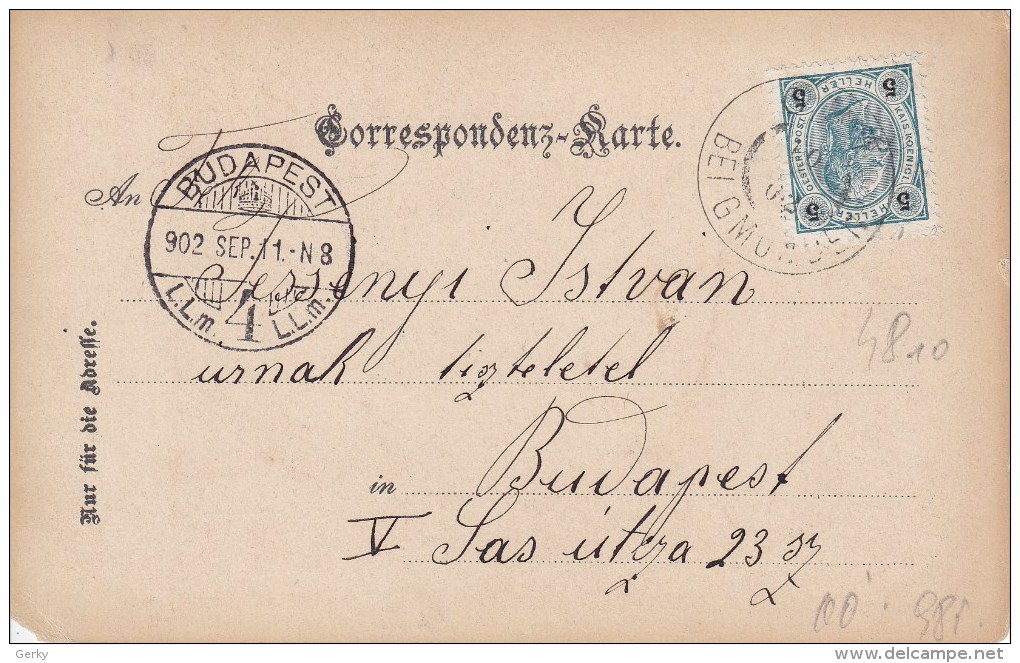 Correspondenz-Karte.
An
Jessenyi Istvan
urnak tiszteletel
in Budapest
V Sas utcza 23 sz
Nur für die Adresse.
BUDAPEST
902 SEP. 11.-N 8
L.L.m. 4 L.L.m.
BEI GMUNDEN
5 HELLER 5
KAIS. KOENIGL.
OESTERR. POST
5 HELLER 5
4810
Gerky
delcampe.net